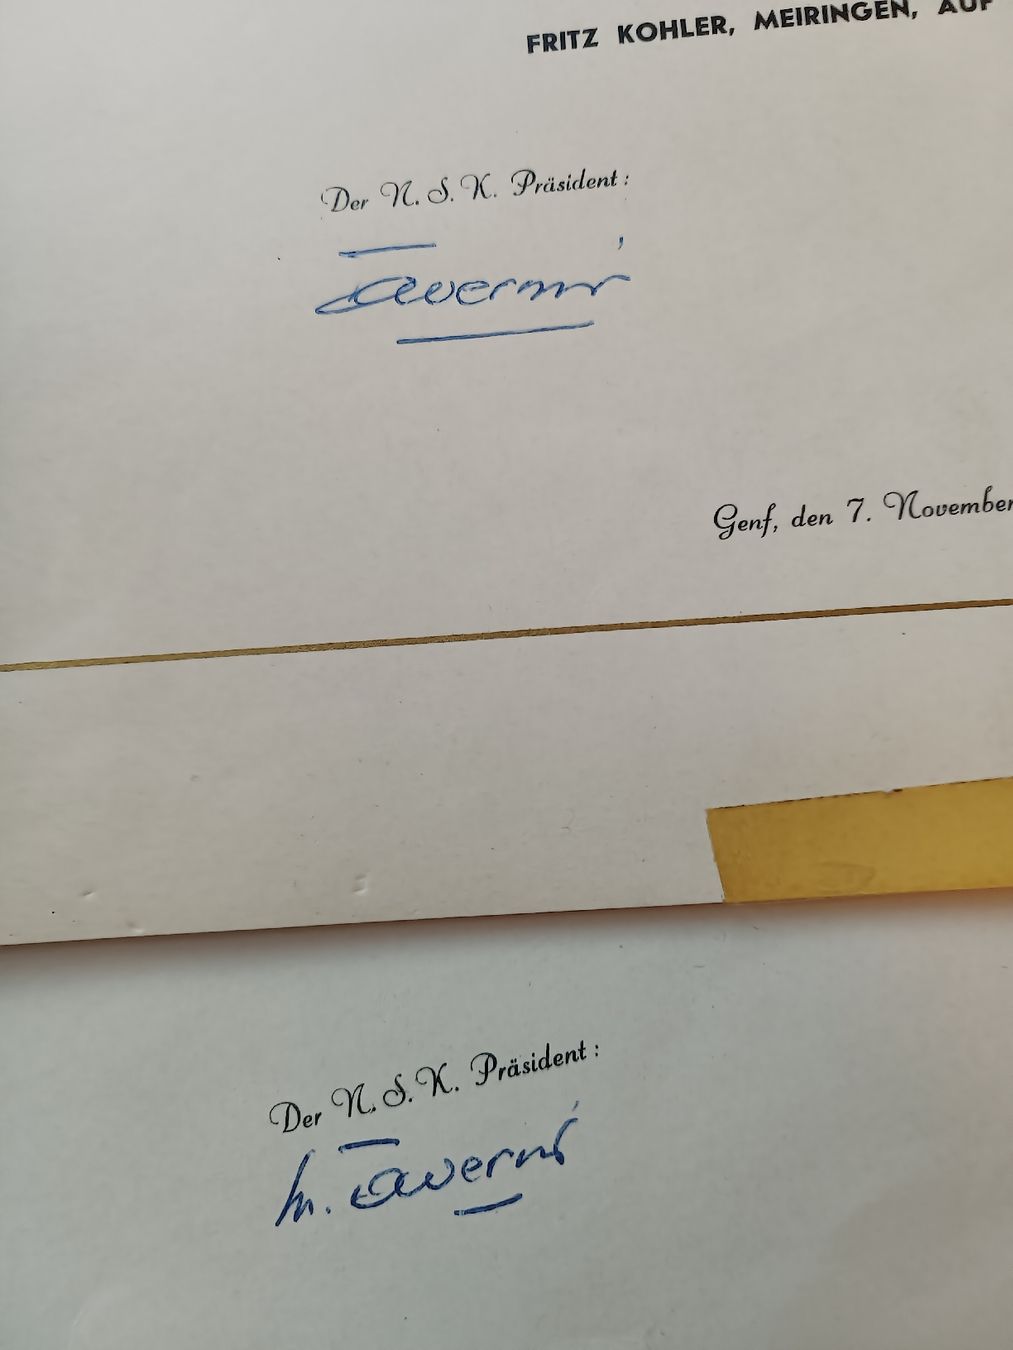 FRITZ KOHLER, MEIRINGEN, AUF
Der N. S. K. Präsident :
Taverni
Genf, den 7. November
Der N. S. K. Präsident :
M. Taverni